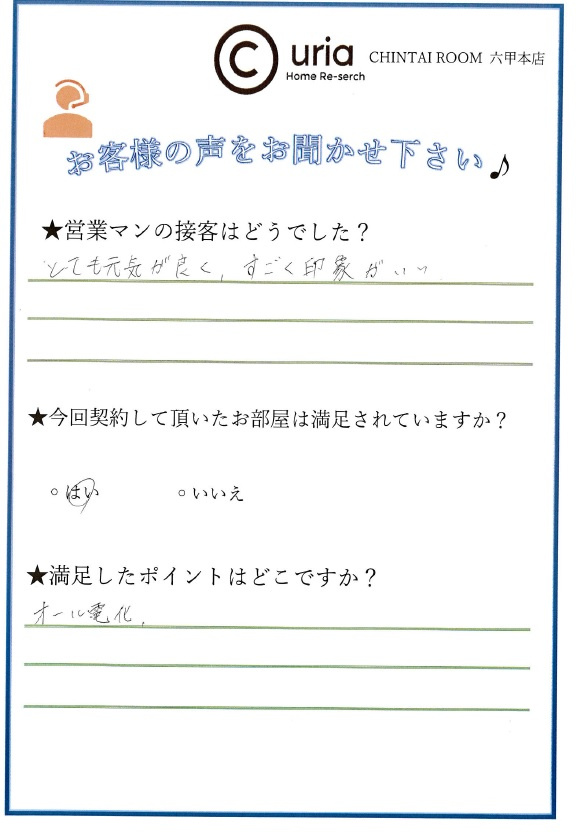 C uria
Home Re-serch
CHINTAI ROOM 六甲本店
お客様の声をお聞かせ下さい♪
★営業マンの接客はどうでした？
とても元気が良く、すごく印象がいい
★今回契約して頂いたお部屋は満足されていますか？
○はい ○いいえ
★満足したポイントはどこですか？
オール電化、